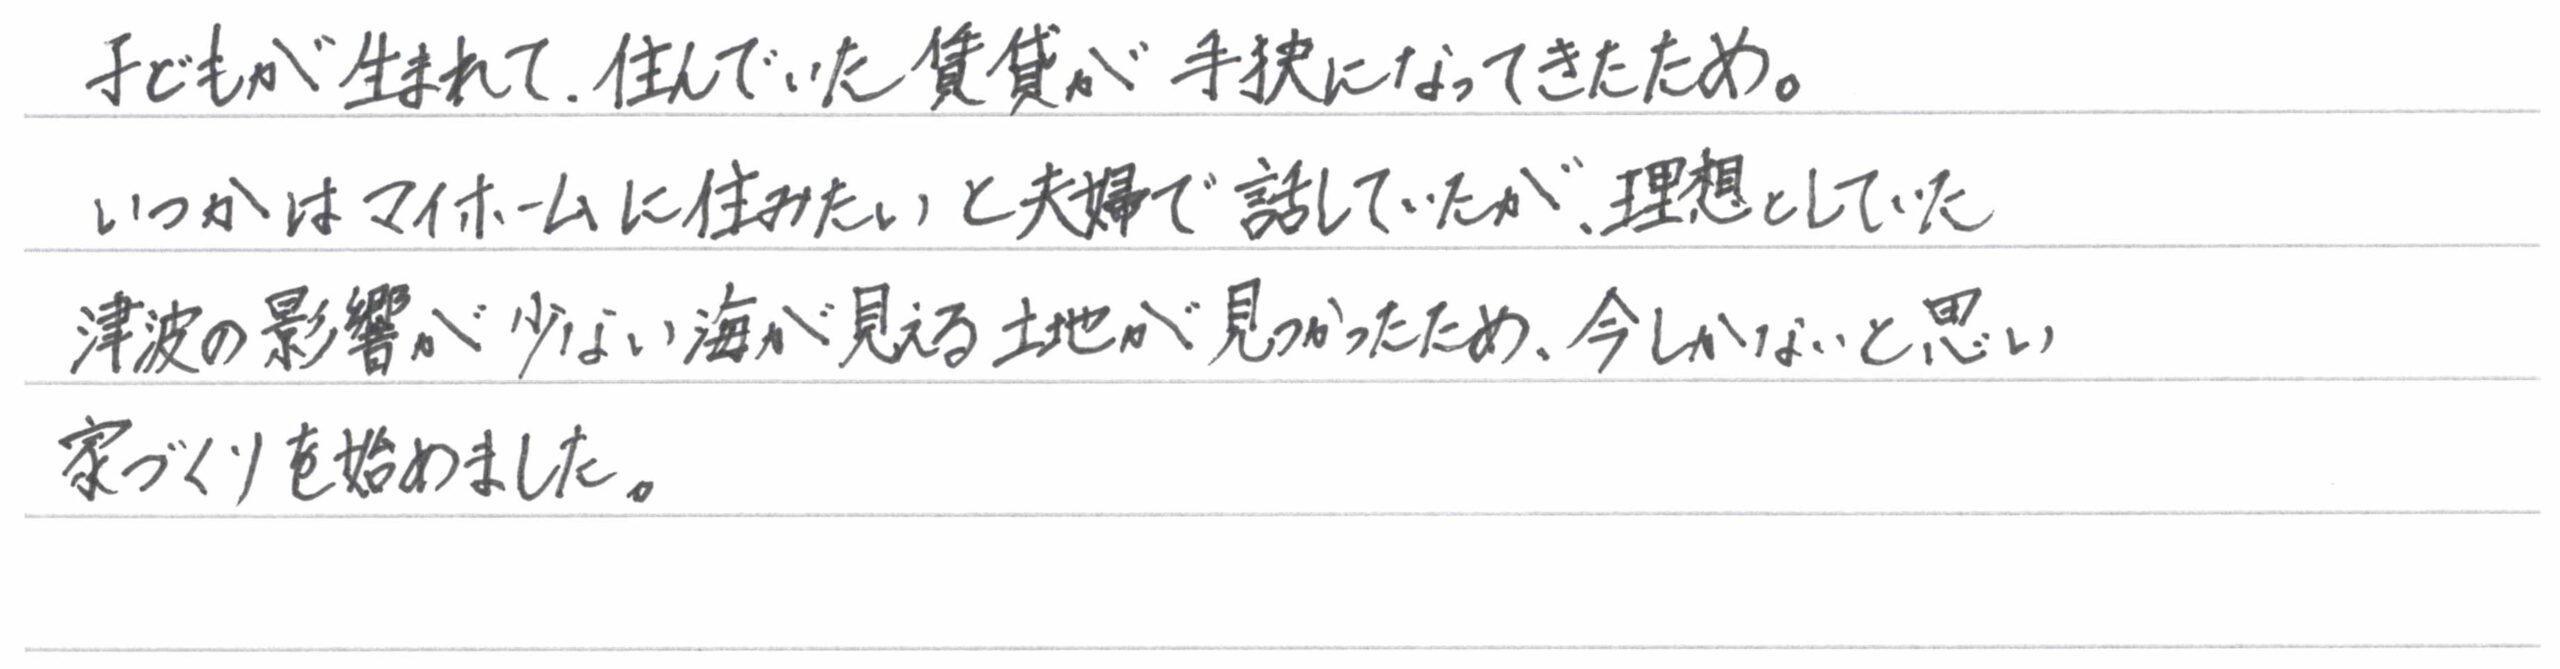 子どもが生まれて、住んでいた賃貸が手狭になってきたため。
いつかはマイホームに住みたいと夫婦で話していたが、理想としていた
津波の影響が少ない海が見える土地が見つかったため、今しかないと思い
家づくりを始めました。